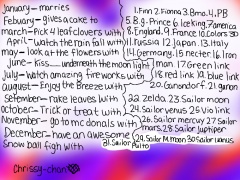 January - marries
Febuary - gives a cake to
march - Pick 4 leaf clovers with
April - watch the rain fall with
may - look at the flowers with
June - kiss underneath the moon light
July - watch amazing fireworks with
august - Enjoy the Breeze with
September - rake leaves with
october - Trick or treat with
November - go to mcdonals with
December - have an awesome
Snow ball figh with
Chrissy-chan
1. Finn 2. Fionna 3. Bmo 4. PB
5. B.g. Prince 6. Iceking 7. America
8. England 9. France 10. Colors 3D
11. Russia 12. Japan 13. Italy
14. Germany 15. recter 16. Iron
man 17. Green link
18. red link 19. blue link
20. Ganondorf 21. garon
22. zelda 23. Sailor moon
24. Sailor venus 25. Sailor
26. Sailor mercury 27. Sailor
mars 28. Sailor Jupiter
29. Sailor M. moon 30. Sailor uranus
31. Sailor Pulto